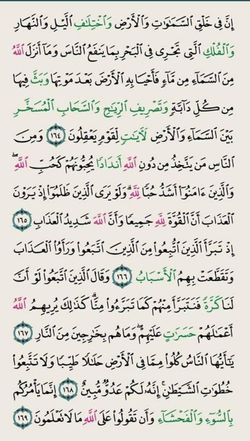 إِنَّ فِي خَلْقِ ٱلسَّمَٰوَٰتِ وَٱلْأَرْضِ وَٱخْتِلَٰفِ ٱلَّيْلِ وَٱلنَّهَارِ
وَٱلْفُلْكِ ٱلَّتِي تَجْرِي فِي ٱلْبَحْرِ بِمَا يَنفَعُ ٱلنَّاسَ وَمَآ أَنزَلَ ٱللَّهُ
مِنَ ٱلسَّمَآءِ مِن مَّآءٍ فَأَحْيَا بِهِ ٱلْأَرْضَ بَعْدَ مَوْتِهَا وَبَثَّ فِيهَا
مِن كُلِّ دَآبَّةٍ وَتَصْرِيفِ ٱلرِّيَٰحِ وَٱلسَّحَابِ ٱلْمُسَخَّرِ
بَيْنَ ٱلسَّمَآءِ وَٱلْأَرْضِ لَأٓيَٰتٍ لِّقَوْمٍ يَعْقِلُونَ ١٦٤ وَمِنَ
ٱلنَّاسِ مَن يَتَّخِذُ مِن دُونِ ٱللَّهِ أَندَادًا يُحِبُّونَهُمْ كَحُبِّ ٱللَّهِۖ
وَٱلَّذِينَ ءَامَنُوٓا۟ أَشَدُّ حُبًّا لِّلَّهِۗ وَلَوْ يَرَى ٱلَّذِينَ ظَلَمُوٓا۟ إِذْ يَرَوْنَ
ٱلْعَذَابَ أَنَّ ٱلْقُوَّةَ لِلَّهِ جَمِيعًا وَأَنَّ ٱللَّهَ شَدِيدُ ٱلْعَذَابِ ١٦٥
إِذْ تَبَرَّأَ ٱلَّذِينَ ٱتُّبِعُوا۟ مِنَ ٱلَّذِينَ ٱتَّبَعُوا۟ وَرَأَوُا۟ ٱلْعَذَابَ
وَتَقَطَّعَتْ بِهِمُ ٱلْأَسْبَابُ ١٦٦ وَقَالَ ٱلَّذِينَ ٱتَّبَعُوا۟ لَوْ أَنَّ
لَنَا كَرَّةً فَنَتَبَرَّأَ مِنْهُمْ كَمَا تَبَرَّءُوا۟ مِنَّاۗ كَذَٰلِكَ يُرِيهِمُ ٱللَّهُ
أَعْمَٰلَهُمْ حَسَرَٰتٍ عَلَيْهِمْۖ وَمَا هُم بِخَٰرِجِينَ مِنَ ٱلنَّارِ ١٦٧
يَٰٓأَيُّهَا ٱلنَّاسُ كُلُوا۟ مِمَّا فِي ٱلْأَرْضِ حَلَٰلًا طَيِّبًا وَلَا تَتَّبِعُوا۟
خُطُوَٰتِ ٱلشَّيْطَٰنِۚ إِنَّهُ لَكُمْ عَدُوٌّ مُّبِينٌ ١٦٨ إِنَّمَا يَأْمُرُكُم
بِٱلسُّوٓءِ وَٱلْفَحْشَآءِ وَأَن تَقُولُوا۟ عَلَى ٱللَّهِ مَا لَا تَعْلَمُونَ ١٦٩